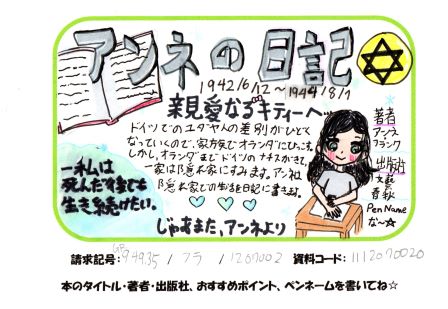 アンネの日記
1942/6/12～1944/8/1
親愛なるキティーへ
ドイツでのユダヤ人の差別がひどく
なっていくので、家族でオランダにひっこす。
しかし、オランダまでドイツのナチスがきて、
一家は隠れ家にすみます。アンネは
隠れ家での生活を日記に書きます。
じゃあまた、アンネより
―私は
死んだ後でも
生き続けたい。
著者
アンネ
フランク
出版社
文藝
春秋
Pen Name
な〜☆
請求記号: 949.35 / フラ / 1207002 資料コード: 1112070020
本のタイトル・著者・出版社、おすすめポイント、ペンネームを書いてね☆